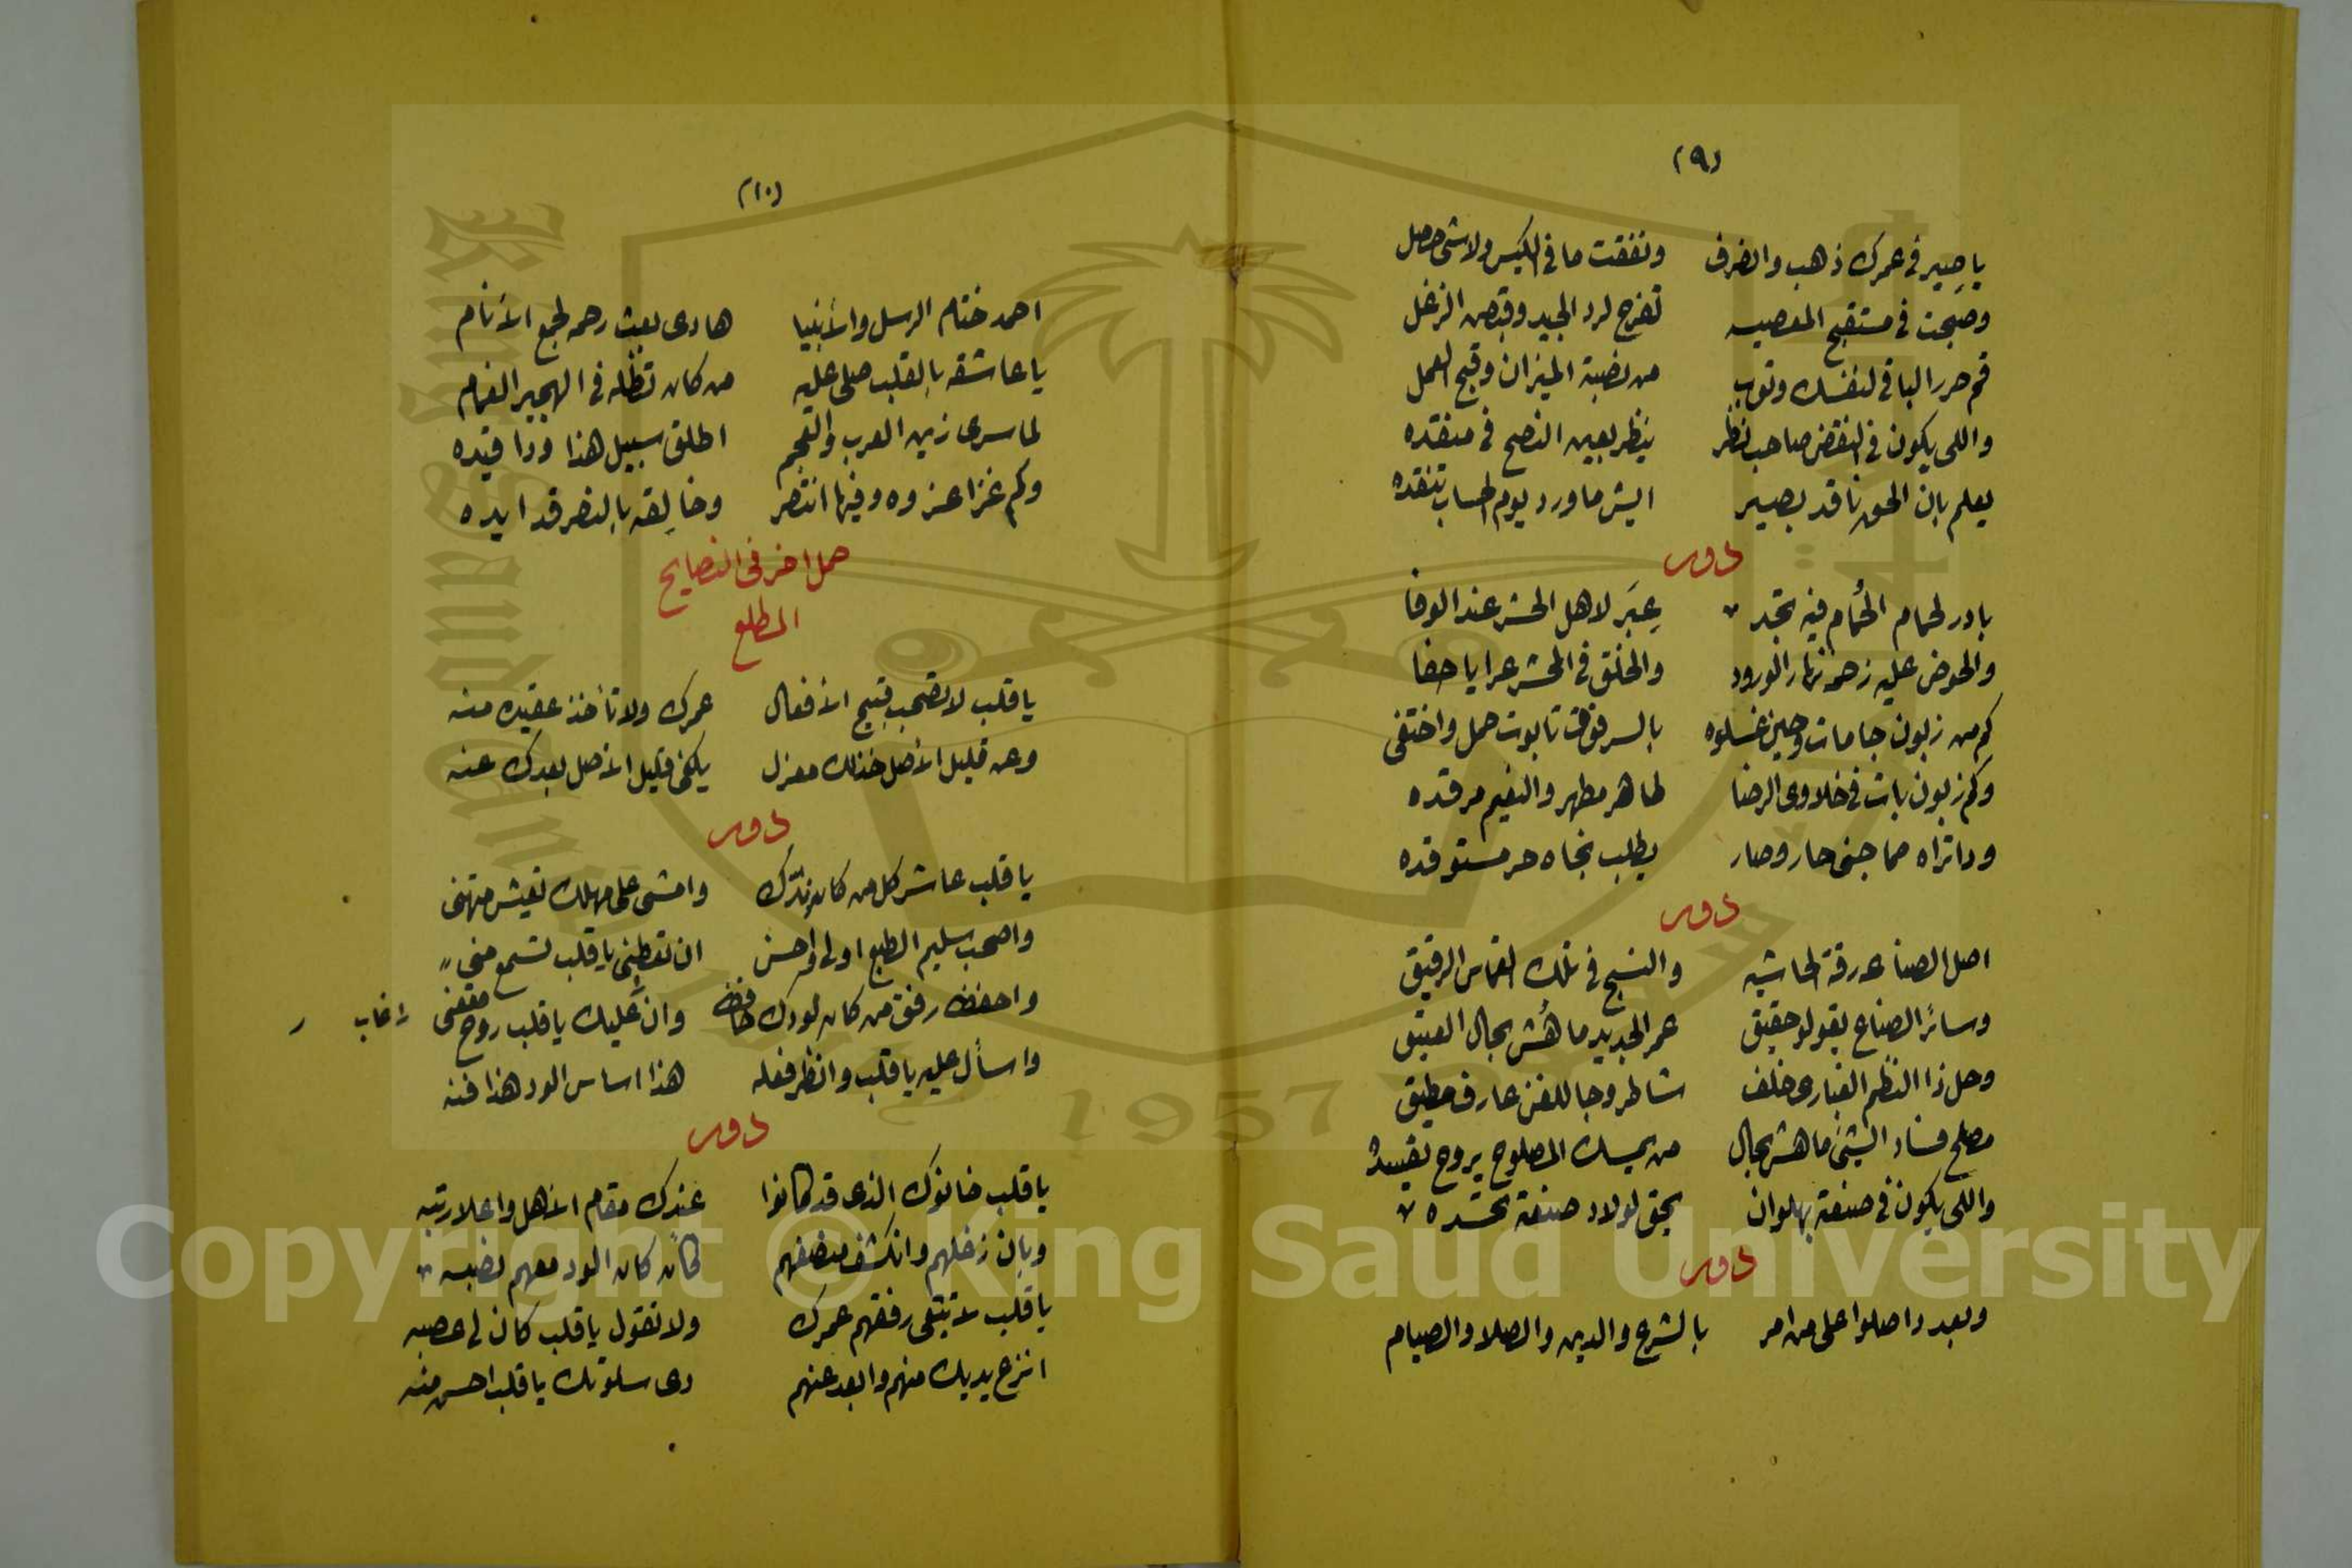 (٩)
يا صير في عمرك ذهب وانصرف ونفقت ما في الكيس ولا شي حصل
وصبحت في مستقبح المعصيه تفرح لرد الجيد وقبض الزغل
قم حرر الباقي لنفسك وتوب من نصبة الميزان وقبح العمل
واللي يكون في النقض صاحب نظر ينظر بعين النصح في منقده
يعلم بان الحق ناقد بصير ايش ما ورد يوم الحساب تنقده
دور
بادر لحمام الحمام فيه تجد عبر لاهل الحشر عند الوفا
والحوض عليه زحمه نهار الورود والخلق في المحشر عرايا حفا
كم من زبون جا مات وحين غسلوه بالسر فوق تابوت حمل واختفى
وكم زبون بات في خلاوى الرضا طاهر مطهر والنعيم مرقده
ودا تراه مما جنى حار وصار يطلب نجاه حر مستوقده
دور
اصل الصناعه رقة الحاشيه والنسج في تلك القماس الرقيق
وسائر الصناع يقولو حقيق عمر الجديد ما هُش بحال العتيق
وحل ذا النظم الغبارى خلف شاطر وجا للفن عارف مطيق
مصلح فساد الشيئ ما هش بحال من يمسك المصلوح يروح يفسده
واللي يكون في صنعة بهلوان يحق لولاد صنعة تحسده
دور
وبعد دا صلوا على من امر بالشرع والدين والصلا والصيام
(١٠)
احمد ختام الرسل والأنبيا هادى بعث رحمه لجمع الأنام
يا عاشقه بالقلب صلى عليه من كان تظله في الهجير الغمام
لما سرى زين العرب والعجم اطلق سبيل هذا ودا قيده
وكم غزا غزوه وفيها انتصر وخالقه بالنصر قد ايده
حمل اخر في النصايح
المطلع
يا قلب لا تصحب قبيح الأفعال عمرك ولا تأخذ عقيده منه
وعن قليل الأصل خذلك معزل يكفى قليل الأصل بعدك عنه
دور
يا قلب عاشر كل من كان ندّك وامشى على مهلك تعيش متهنى
واصحب سليم الطبع اولى واحسن ان تعطنى يا قلب تسمع منى
واحفظ رفق من كان لودك حافظ وان عليك يا قلب روح مقفى
اغاب
واسأل عليه يا قلب وانظر فعله هذا اساس الود هذا فنه
دور
يا قلب خانوك الذى قد كانوا عندك مقام الأهل واعلا رتبه
وبان زغلهم وانكشف منصفهم كان كان الود معهم نصبه
يا قلب لا تبقى رفقهم عمرك ولا تقول يا قلب كان لى عصبه
انزع يديك منهم وابعد عنهم دى سلوتك يا قلب احسن منه
Copyright © King Saud University
1957